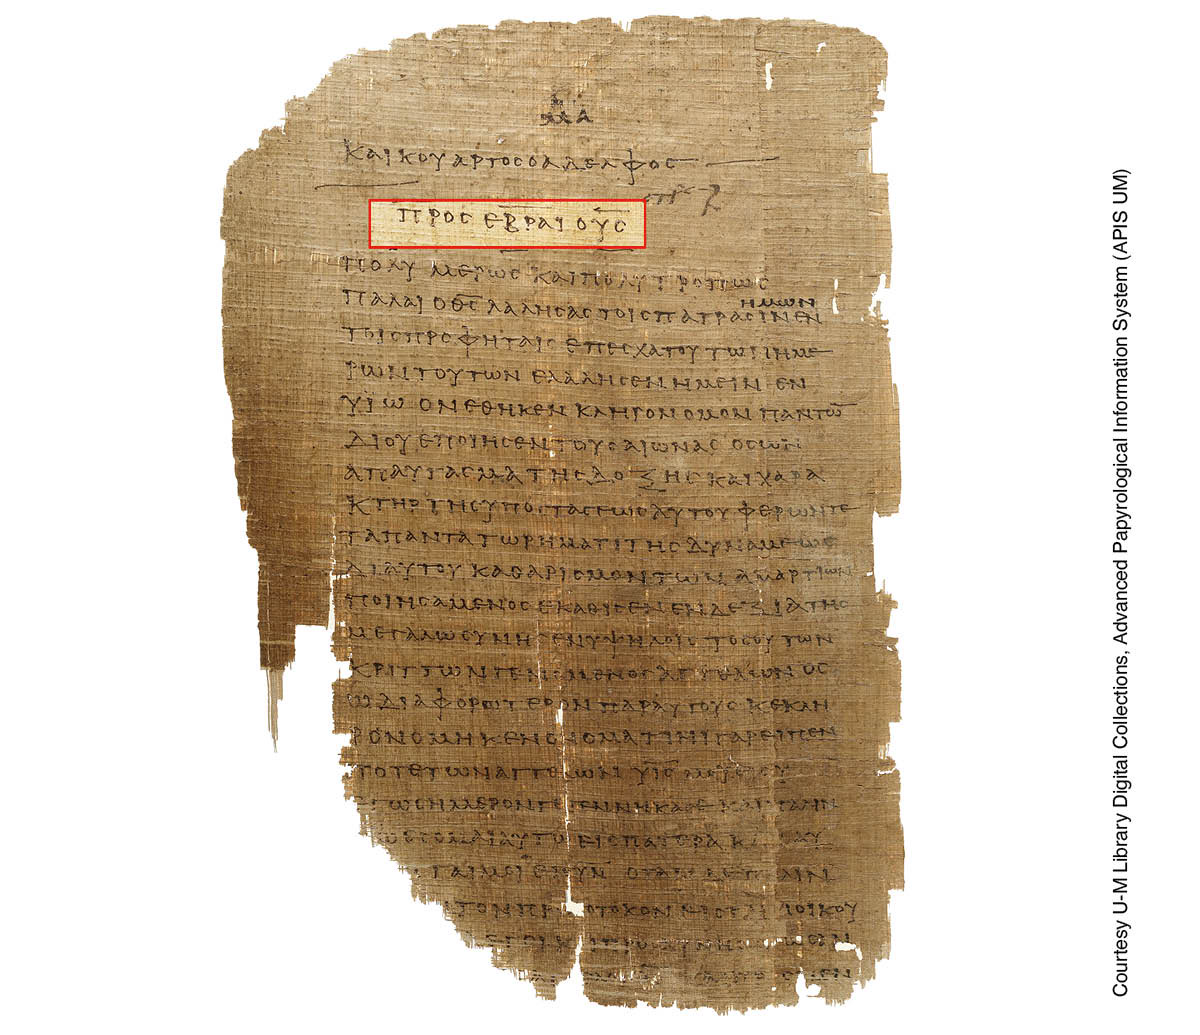 ΚΑΙ ΚΟΥΑΡΤΟϹ Ο ΑΔΕΛΦΟϹ
ΠΡΟϹ ΕΒΡΑΙΟΥϹ
ΠΟΛΥΜΕΡΩϹ ΚΑΙ ΠΟΛΥΤΡΟΠΩϹ
ΗΜΩΝ
ΠΑΛΑΙ Ο Θ̅Ϲ̅ ΛΑΛΗϹΑϹ ΤΟΙϹ ΠΑΤΡΑϹΙΝ ΕΝ
ΤΟΙϹ ΠΡΟΦΗΤΑΙϹ ΕΠ ΕϹΧΑΤΟΥ ΤΩΝ ΗΜΕ
ΡΩΝ ΤΟΥΤΩΝ ΕΛΑΛΗϹΕΝ ΗΜΕΙΝ ΕΝ
ΥΙΩ ΟΝ ΕΘΗΚΕΝ ΚΛΗΡΟΝΟΜΟΝ ΠΑΝΤΩ̅
ΔΙ ΟΥ ΕΠΟΙΗϹΕΝ ΤΟΥϹ ΑΙΩΝΑϹ ΟϹ ΩΝ
ΑΠΑΥΓΑϹΜΑ ΤΗϹ ΔΟΞΗϹ ΚΑΙ ΧΑΡΑ
ΚΤΗΡ ΤΗϹ ΥΠΟϹΤΑϹΕΩϹ ΑΥΤΟΥ ΦΕΡΩΝ ΤΕ
ΤΑ ΠΑΝΤΑ ΤΩ ΡΗΜΑΤΙ ΤΗϹ ΔΥΝΑΜΕΩϹ
ΔΙ ΑΥΤΟΥ ΚΑΘΑΡΙϹΜΟΝ ΤΩΝ ΑΜΑΡΤΙΩΝ
ΠΟΙΗϹΑΜΕΝΟϹ ΕΚΑΘΙϹΕΝ ΕΝ ΔΕΞΙΑ ΤΗϹ
ΜΕΓΑΛΩϹΥΝΗϹ ΕΝ ΥΨΗΛΟΙϹ ΤΟϹΟΥΤΩΝ
ΚΡΙΤΤΩΝ ΓΕΝΟΜΕΝΟϹ ΑΓΓΕΛΩΝ ΟϹ
Ω ΔΙΑΦΟΡΩΤΕΡΟΝ ΠΑΡ ΑΥΤΟΥϹ ΚΕΚΛΗ
ΡΟΝΟΜΗΚΕΝ ΟΝΟΜΑ ΤΙΝΙ ΓΑΡ ΕΙΠΕΝ
ΠΟΤΕ ΤΩΝ ΑΓΓΕΛΩΝ Υ̅Ϲ̅ ΜΟΥ ΕΙ ϹΥ
ΕΓΩ ϹΗΜΕΡΟΝ ΓΕΓΕΝΝΗΚΑ ϹΕ ΚΑΙ ΠΑΛΙΝ
ΑΥΤΩ ΕΙϹ ΠΑΤΕΡΑ
ΟΤΑΝ ΔΕ ΠΑΛΙΝ
Courtesy U-M Library Digital Collections, Advanced Papyrological Information System (APIS UM)